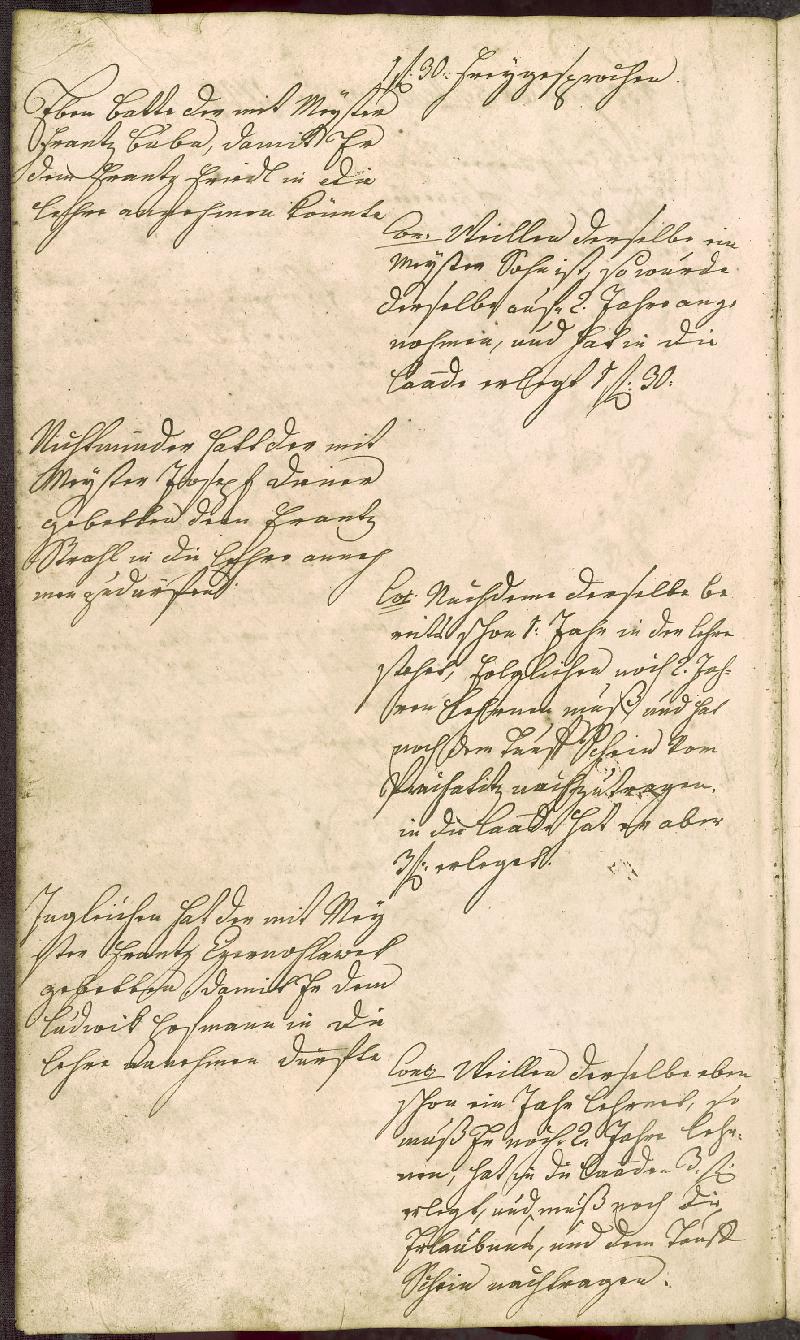 1 f: 30: freygesprochen.
Eben batte der mit Meyster
Frantz Buba, damit Er
dem Frantz Friedl in die
Lehre annehmen könnte
Con: Weillen derselbe ein
Meyster Sohn ist, so wurde
derselbe auf 2. Jahre ange
nohmen, und hat in die
Laade erlegt 1 f: 30:
Nichtminder hatt der mit
Meyster Joseph
gebetten dem Frantz
Strahl in die Lehre anneh
men zu dürfen
Con: Nachdeme derselbe be
reits schon 1: Jahr in der Lehre
stehet, folglichen noch 2. Jah-
ren Lehrnen muß, und hat
noch dem Tauf Schein vom
Prachatitz nachzutragen.
in die Laade hat er aber
3 f: erleget.
Ingleichen hat der mit Mey
ster Frantz
gebetten damit Er dem
Ludwik Hofmann in die
Lehre annehmen durfte
Con: Weillen derselbe eben
schon ein Jahr Lehrnet, so
muß Er noch 2. Jahre Lehr-
nen, hat in die Laade 3. f:
erlegt, und muß noch die
Erlaubnus, und dem Tauf
Schein nachtragen.